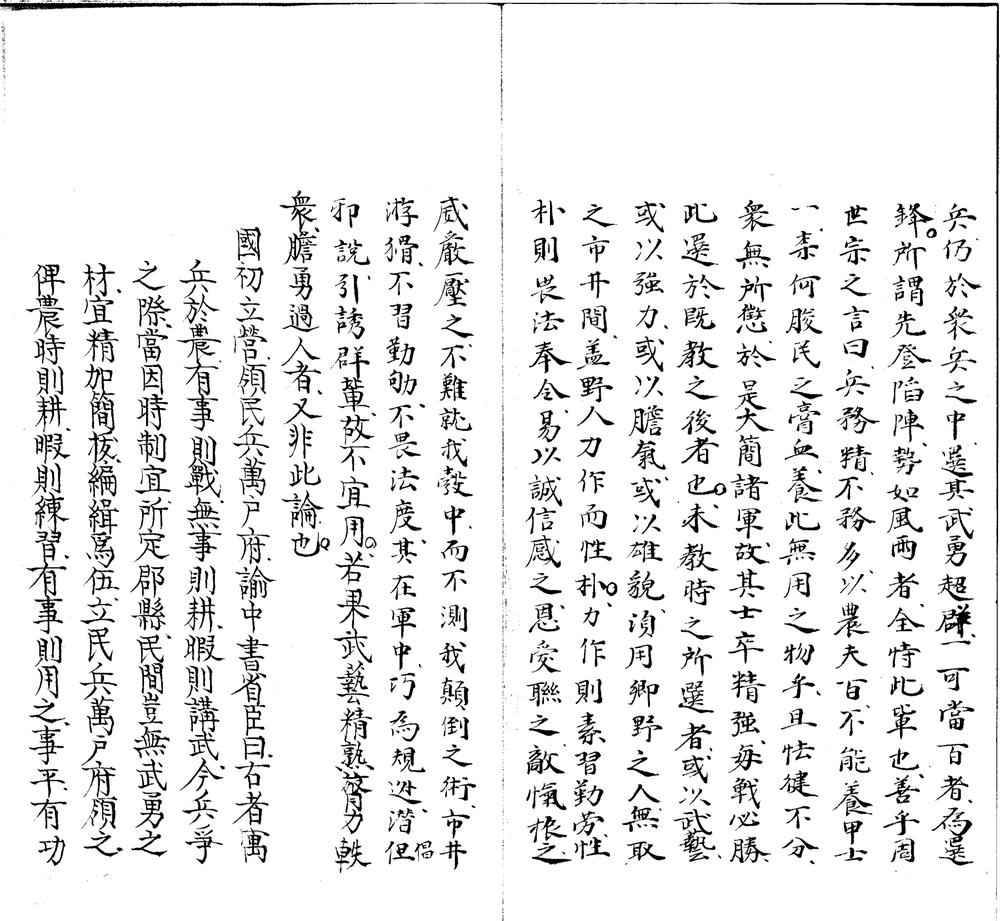 兵仍於衆兵之中選其武勇超群一可當百者為選
鋒。所謂先登陷陣勢如風雨者全恃此軰也善乎周
世宗之言曰兵務精不務多以農夫百不能養甲士
一柰何朘民之膏血養此無用之物乎且怯健不分
衆無所懲於是大簡諸軍故其士卒精强每戰必勝
此選於既教之後者也。未教時之所選者或以武藝
或以強力或以膽氣或以雄貌湏用鄉野之人無取
之市井間盖野人力作而性朴。力作則素習勤劳性
朴則畏法奉令易以誠信感之恩愛聯之敵愾根之
威嚴壓之不難就我彀中而不測我顛倒之術市井
游猾不習勤劬不畏法度其在軍中巧為規避潜但倡
邪說引誘群軰故不宜用。若果武藝精熟膂力軼
衆膽勇過人者又非此論也。
國初立營領民兵萬戶府諭中書省臣曰古者寓
兵於農有事則戰無事則耕暇則講武今兵爭
之際當因時制宜所定郡縣民間豈無武勇之
材宜精加簡㧞編緝爲伍立民兵萬戶府領之
俾農時則耕暇則練習有事則用之事平有功